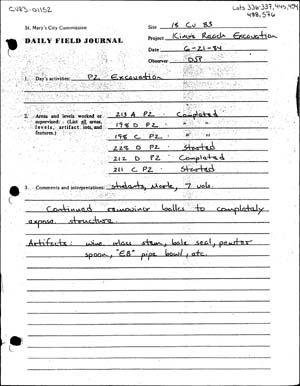 CVR3-01152
Lots 336-337, 445, 454
488, 576
St. Mary's City Commission
Site 18 Cv 83
DAILY FIELD JOURNAL
Project King's Reach Excavation
Date 6-21-84
Observer DJP
1. Day's activities: PZ Excavation
2. Areas and levels worked or supervised: (List all areas, levels, artifact lots, and features.)
213 A PZ Completed
198 D PZ " "
198 C PZ " "
228 D PZ Started
212 D PZ Completed
211 C PZ Started
3. Comments and interpretations: students, 7 vols.
Continued removing balks to completely
expose structure.
Artifacts: wine glass stem, bale seal, pewter
spoon, "EB" pipe bowl, etc.